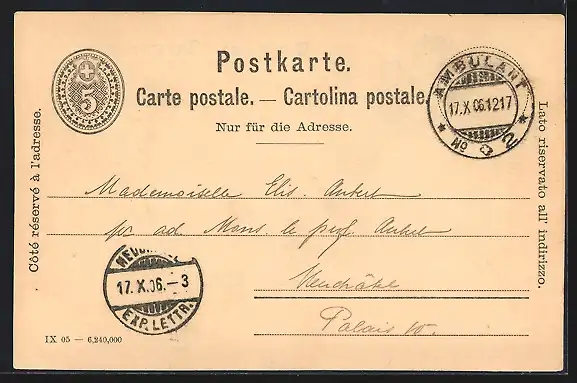 5
Postkarte.
Carte postale. — Cartolina postale.
Nur für die Adresse.
AMBULANT
17.X.06.1217
No 2
Côté réservé à l'adresse.
Lato riservato all' indirizzo.
Mademoiselle Elis.
ad Mons. le prof.
Neuchâtel
Palais
17.X.06.–3
EXP. LETTR.
IX 05 — 6,240,000